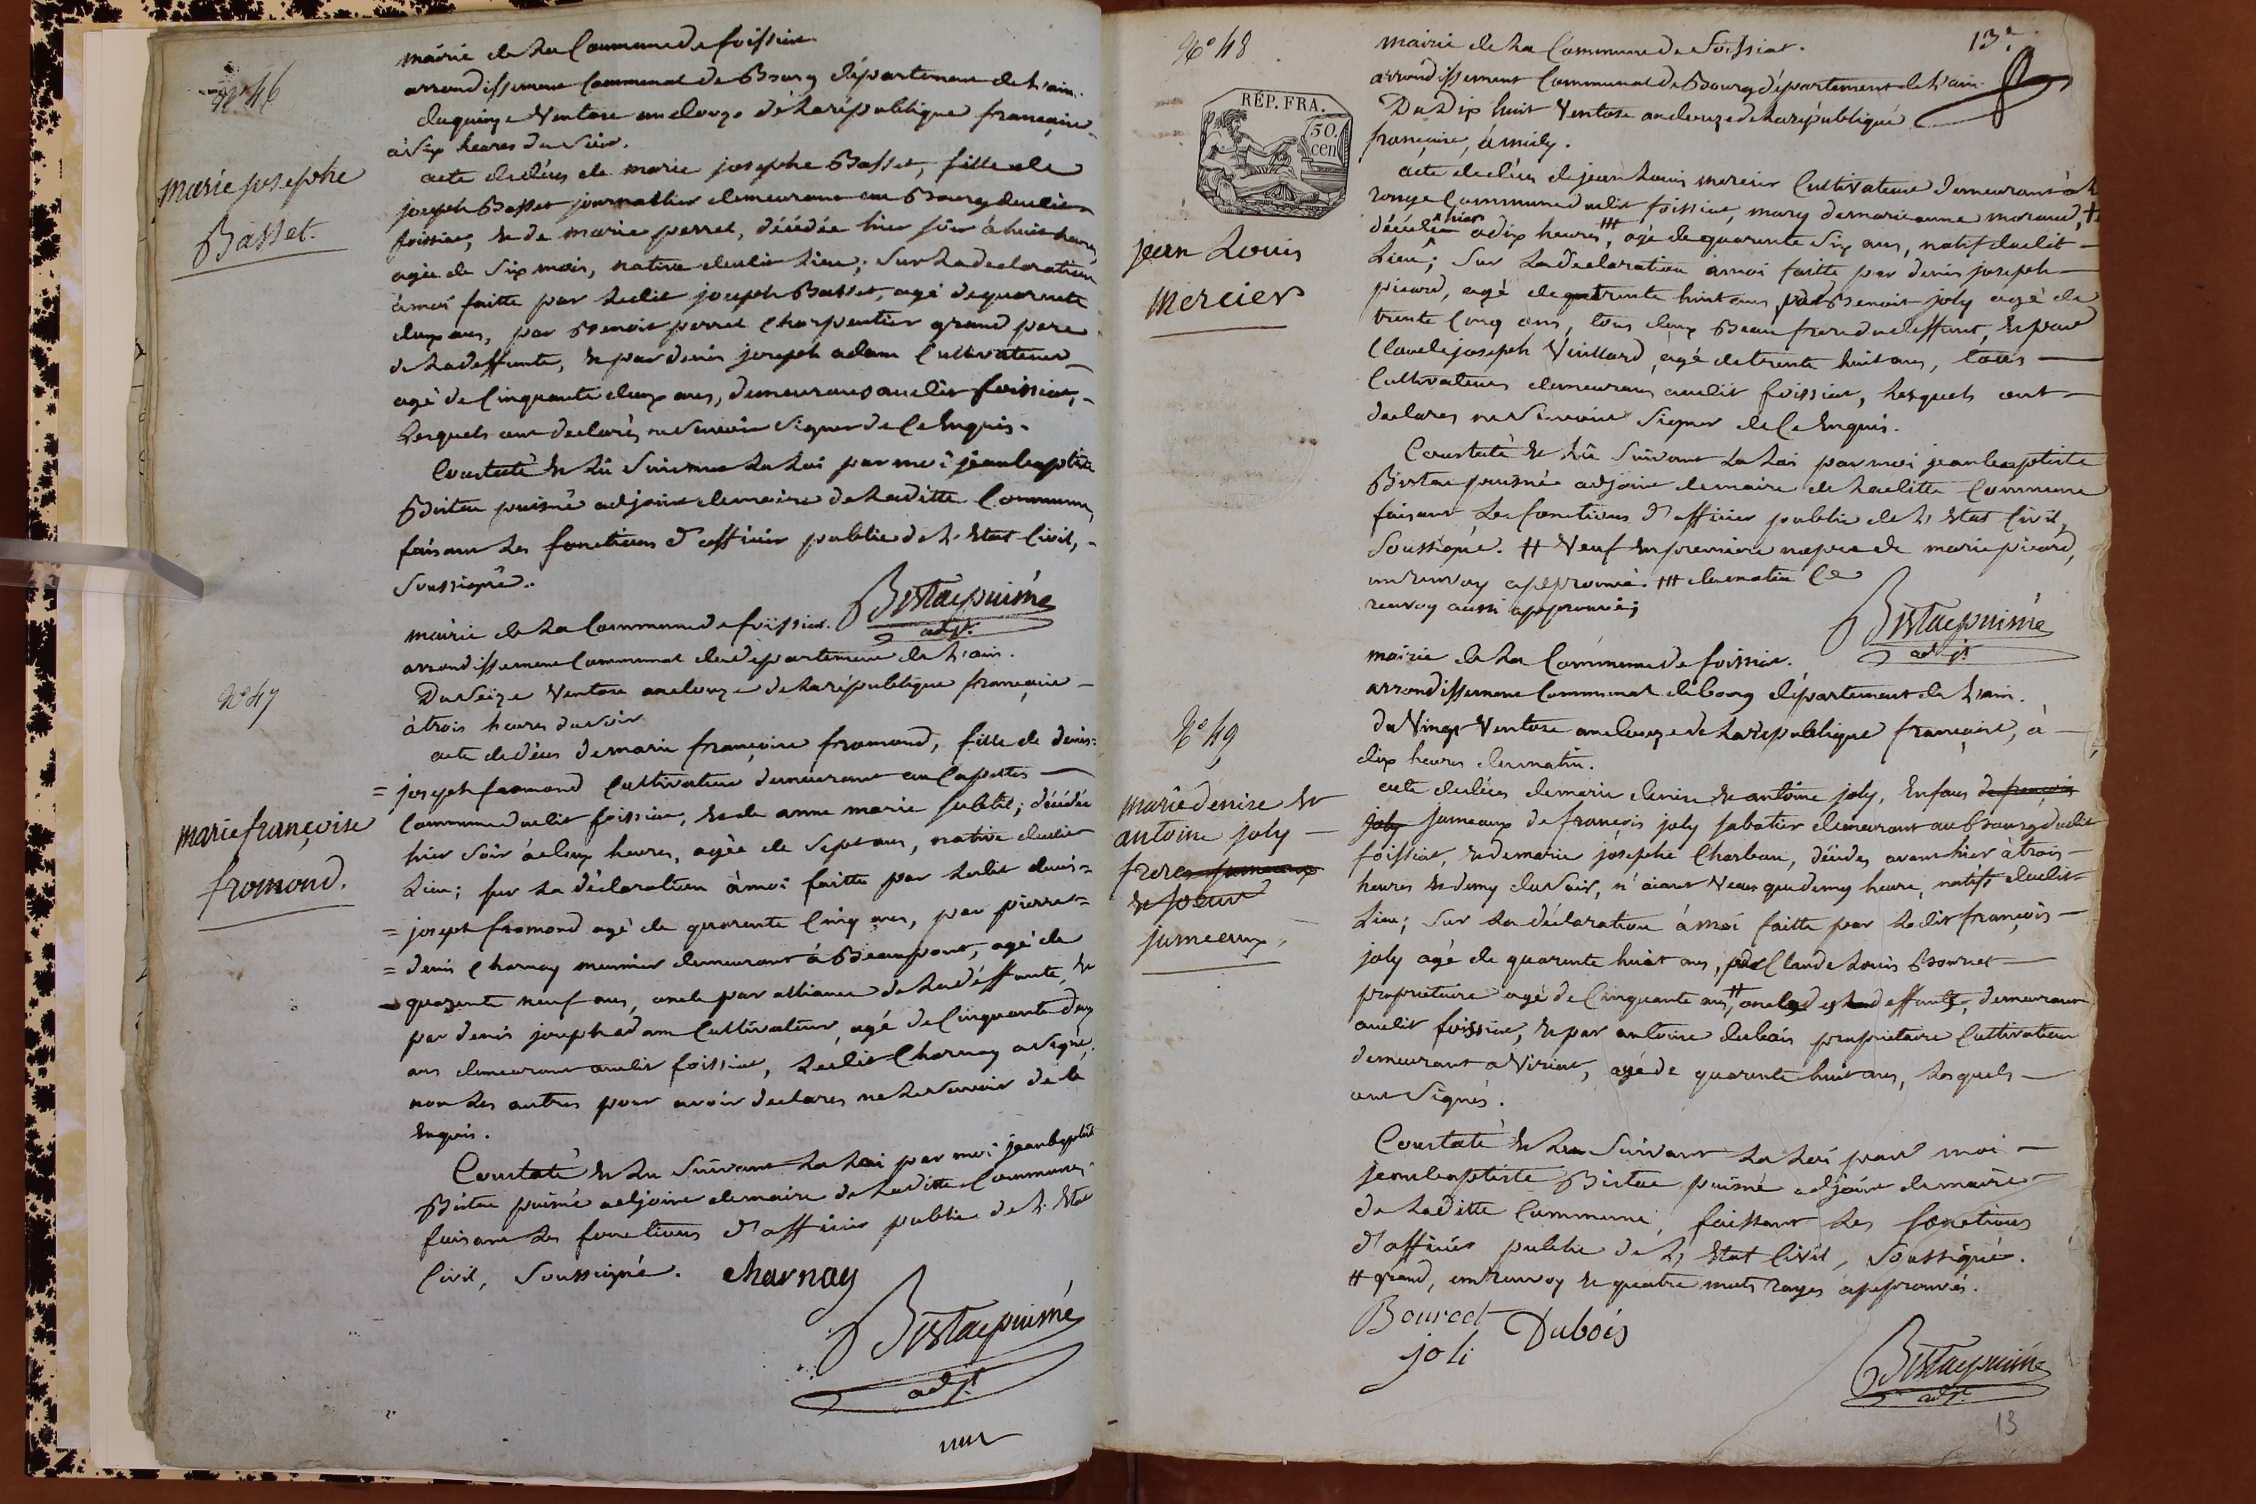 N° 46
marie josephe
Basset.
mairie de La Commune de foissiat
arrondissement Communal de Bourg département de L'ain.
du quinze Ventose an douze de La république française
à Six heures du Soir.
acte de décès de marie josephe Basset, fille de
joseph Basset journallier demeurant au Bourg dudit
foissiat, et de marie perret, décédée hier soir à huit heures,
agée de Six mois, native dudit Lieu; Sur La declaration
à moi faitte par Ledit joseph Basset, agé de quarente
deux ans, par Benoit perret Charpentier grand pere
de La deffunte, et par denis joseph adam Cultivateur
agé de Cinquante deux ans, demeurans audit foissiat,
Lesquels ont declarés ne Scavoir Signer de Ce Enquis.
Constaté et Lû Suivant La Loi par moi jean baptiste
Bistac puisné adjoint de maire de Laditte Commune,
faisant Les fonctions d'officier public de L'Etat Civil,
Soussigné.
Bistac puisné
adjt.
N° 47
marie françoise
fromond.
mairie de La Commune de foissiat.
arrondissement Communal du département de L'ain.
Du Seize Ventose an douze de La république française
à trois heures du soir
acte de décès de marie françoise fromond, fille de denis=
= joseph fromond Cultivateur demeurant au
Commune dudit foissiat, et de anne marie ; décédée
hier soir à deux heures, agée de Sept ans, native dudit
Lieu; sur La déclaration à moi faitte par Ledit denis=
= joseph fromond agé de quarente Cinq ans, par pierre=
= denis Charnay meunier demeurant à Beaupont, agé de
quarente neuf ans, oncle par alliance de La déffunte, et
par denis joseph adam Cultivateur, agé de Cinquante deux
ans demeurant audit foissiat, Ledit Charnay a Signé,
non Les autres pour avoir declarés ne Le Scavoir de Ce
Enquis.
Constaté et Lu Suivant La Loi par moi jean baptiste
Bistac puisné adjoint de maire de Laditte Commune,
faisant Les fonctions d'officier public de L'Etat
Civil, Soussigné. charnay
Bistac puisné
adjt
13e
N° 48
RÉP. FRA.
50.
cen
jean Louis
Mercier
mairie de La Commune de foissiat.
arrondissement Communal de Bourg département de L'ain.
Du Dix huit Ventose an douze de La république
française, à midy.
acte de décès de jean Louis mercier Cultivateur demeurant à
Commune dudit foissiat, mary de marie anne moraud, ††
décédé hier à dix heures †††, agé de quarente Six ans, natif dudit
Lieu; Sur La declaration à moi faitte par denis joseph
picard, agé de trente huit ans, par Benoit joly agé de
trente Cinq ans, tous deux Beau frere du deffunt, et par
Claude joseph Vuillard, agé de trente huit ans, tous
Cultivateurs demeurans audit foissiat, Lesquels ont
declares ne Scavoir Signer de Ce Enquis.
Constaté et Lû Suivant La Loi par moi jean baptiste
Bistac puisné adjoint de maire de Laditte Commune
faisant Les fonctions d'officier public de L'Etat Civil,
Soussigné. †† Veuf en premiere nopce de marie picard,
un renvoy approuvé. ††† du matin Ce
renvoy aussi approuvé;
Bistac puisné
adjt
N° 49
marie denise et
antoine joly
freres jumeaux
et soeur
jumeaux,
mairie de La Commune de foissiat.
arrondissement Communal de bourg département de L'ain.
du Vingt Ventose an douze de La république française, à
dix heures du matin.
acte de décès de marie denise et antoine joly, Enfans de françois
joly jumeaux de françois joly sabotier demeurant au Bourg dudit
foissiat, et de marie josephe Charbon, décédés avant hier à trois
heures et demy du Soir, n'aiant Vecus que demy heure, natifs dudit
Lieu; Sur La déclaration à moi faitte par Ledit françois
joly agé de quarente huit ans, par Claude Louis Bourcet
propriétaire agé de Cinquante ans, †† oncle des deffunts, demeurant
audit foissiat, et par antoine dubois propriétaire Cultivateur
demeurant a Viriat, agé de quarente huit ans, Lesquels
ont Signés.
Constaté et Lu Suivant La Loi par moi
jean baptiste Bistac puisné adjoint de maire
de Laditte Commune, faissant Les fonctions
d'officier public de L'Etat Civil, Soussigné.
†† grand, un renvoy et quatre mots rayés approuvés.
Bourcet Dubois
joli
Bistac puisné
adjt
13